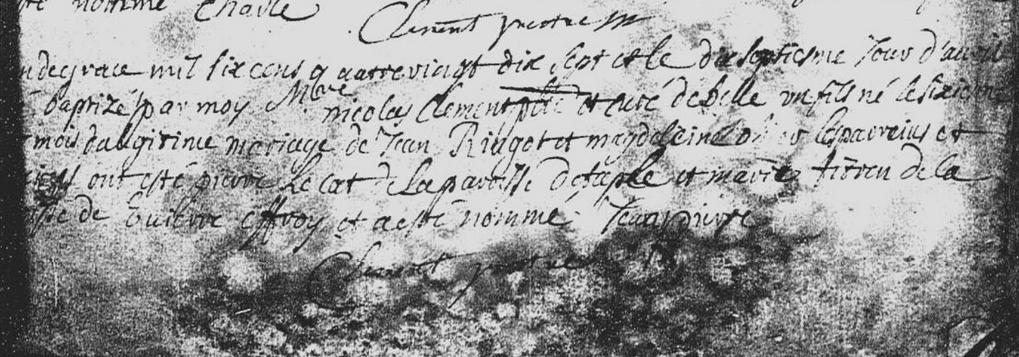 nommé Charle
Clement prestre
de grace mil six cens quattre vingt dix sept et le dix septiesme Jour d'avril
baptizé par moy Mtre nicolas Clement pbre et curé de belle un fils né le sixiesme
mois du legitime mariage de Jean Ringot et magdelaine les parreins et
ont esté pierre Le cat de la paroisse detaple et marie de la
de et a esté nommé Jean pierre
Clement prestre